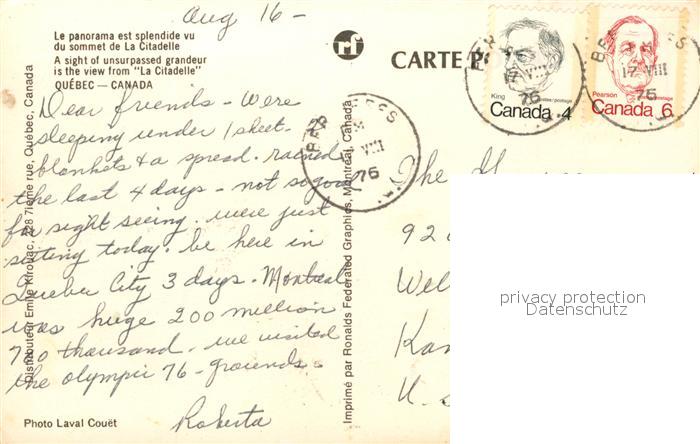 Aug 16 -
Le panorama est splendide vu
du sommet de La Citadelle
A sight of unsurpassed grandeur
is the view from "La Citadelle"
QUÉBEC — CANADA
Dear friends - Were
sleeping under 1 sheet - 2
blankets & a spread. rained
the last 4 days - not so good
for sight seeing. were just
sitting today. be here in
Quebec City 3 days. Montreal
was huge 200 million
700 thousand. we visited
the olympic 76 - grounds.
Roberta
Photo Laval Couët
Distributeur Emile Kirouac, 228 7ième rue, Québec, Canada
Imprimé par Ronalds Federated Graphics, Montréal, Canada
rf
CARTE P
King
postes/postage
Canada 4
Pearson
postes/postage
Canada 6
17 VIII
75
17 VIII
75
VIII
75
The
92
Wel
Kan
U.S
privacy protection
Datenschutz